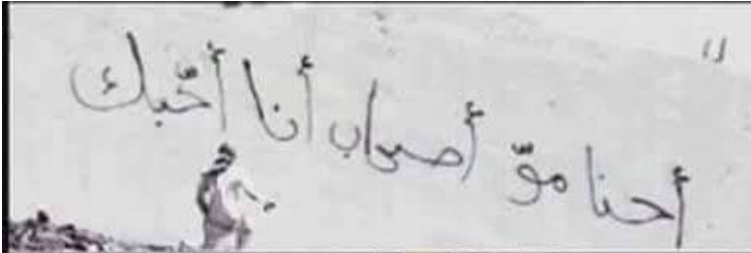 أحنا موّ أصحاب أنا أحّبك